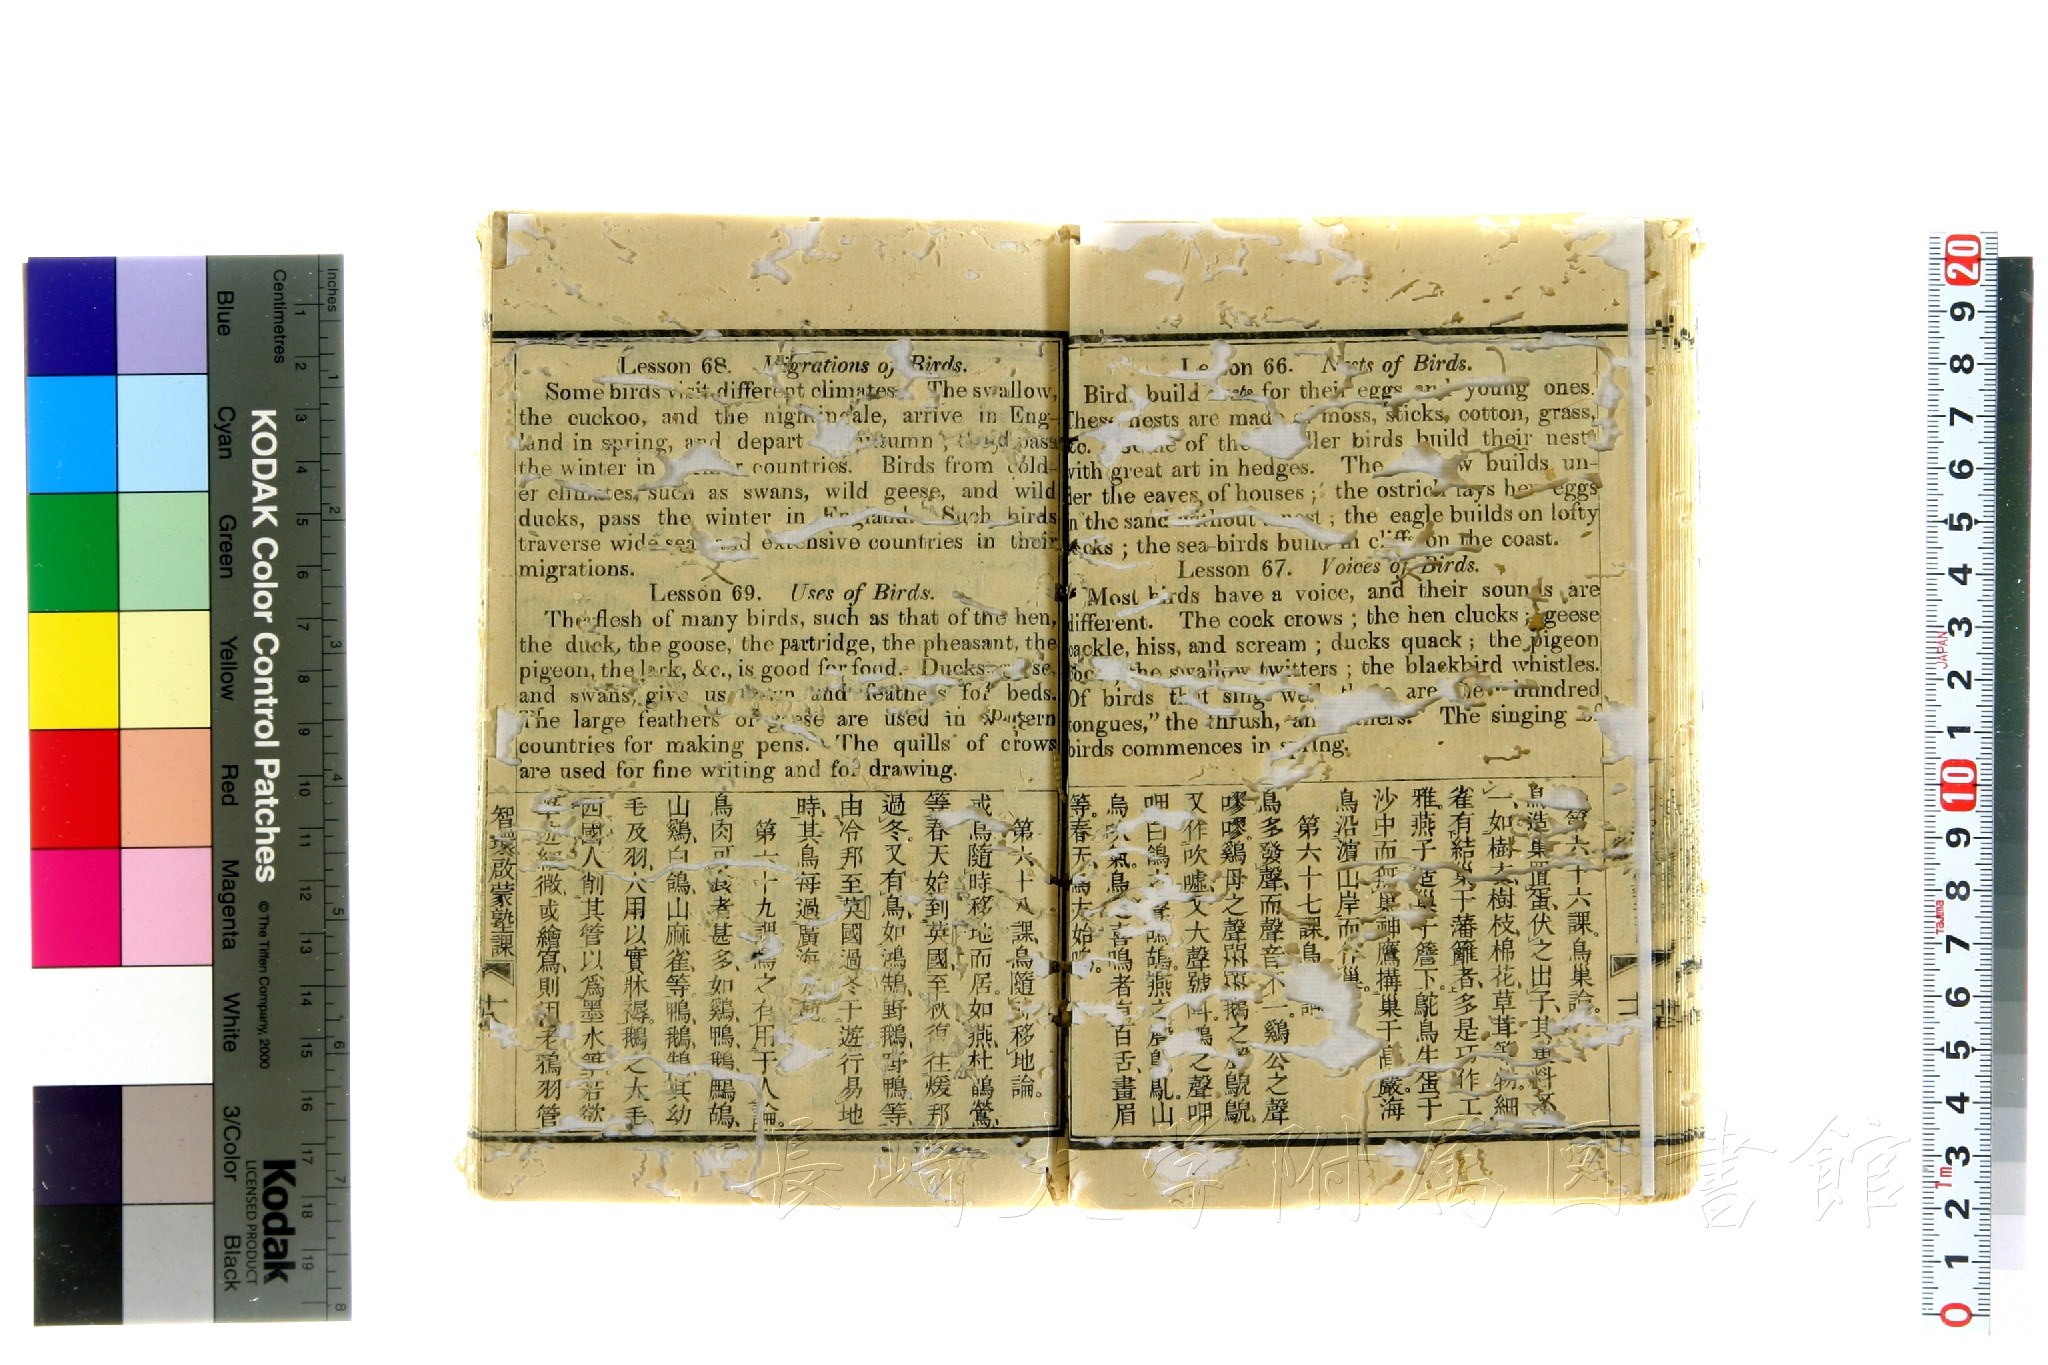 Lesson 66. Nests of Birds.
build for their eggs and young ones.
These nests are made moss, sticks, cotton, grass,
of the birds build their nests
with great art in hedges. The builds un-
der the eaves of houses; the ostrich lays her eggs
n the sand without nest; the eagle builds on lofty
; the sea-birds build in cliffs on the coast.
Lesson 67. Voices of Birds.
Most birds have a voice, and their sounds are
different. The cock crows; the hen clucks; geese
cackle, hiss, and scream; ducks quack; the pigeon
the swallow twitters; the blackbird whistles.
Of birds that sing well are hundred
tongues," the thrush, The singing of
birds commences in spring.
第六十六課鳥巢論。
鳥造巢置蛋、伏之出子、其
如樹木樹枝、棉花、草茸等物。細
雀有結巢于藩籬者、多是巧作工
雅。燕子造巢于簷下。鴕鳥生蛋于
沙中而無巢。神鷹搆巢于高嚴。海
鳥沿濱山岸而巢。
第六十七課、鳥
鳥多發聲、而聲音不一。鷄公之聲
嘐嘐。鷄母之聲 鵝之
又作吹噓、又大聲號 鴨之聲呷
呷。白鴿 燕
鳥 喜鳴者、百舌、畫眉
等。春天、鳥 始鳴。
Lesson 68. Migrations of Birds.
Some birds visit different climates. The swallow,
the cuckoo, and the nightingale, arrive in Eng-
land in spring, and depart autumn; pass
the winter in countries. Birds from cold-
er climates, such as swans, wild geese, and wild
ducks, pass the winter in England. Such birds
traverse wide seas and extensive countries in their
migrations.
Lesson 69. Uses of Birds.
The flesh of many birds, such as that of the hen,
the duck, the goose, the partridge, the pheasant, the
pigeon, the lark, &c., is good for food. Ducks,
and swans, give us down and feathers for beds.
The large feathers of geese are used in
countries for making pens. The quills of crows
are used for fine writing and for drawing.
第六十八課、鳥隨 移地論。
或鳥隨時移地而居。如燕、杜鵑、鶯、
等、春天始到英國、至秋復往煖邦
過冬。又有鳥、如鴻鵠、野鵝、野鴨等、
由冷邦至英國過冬。于遊行易地
時、其鳥每過廣海
第六十九課、鳥之有用于人論。
鳥肉可食者甚多、如鷄、鴨、鵝、鷓鴣、
山鷄、白鴿、山麻雀等。鴨、鵝、鵠、其幼
毛及羽、人用以實牀褥。鵝之大毛
西國人削其管以爲墨水筆。若欲
微、或繪寫、則用老鴉羽管
智環啟蒙塾課
長崎大学附属図書館
KODAK Color Control Patches
© The Tiffen Company, 2000
Kodak
LICENSED PRODUCT
Inches
Centimetres
1 2 3 4 5 6 7 8 9 10 11 12 13 14 15 16 17 18 19
1 2 3 4 5 6 7 8
Blue
Cyan
Green
Yellow
Red
Magenta
White
3/Color
Black
20 9 8 7 6 5 4 3 2 1 10 9 8 7 6 5 4 3 2 1 0
JAPAN
Tajima
1m